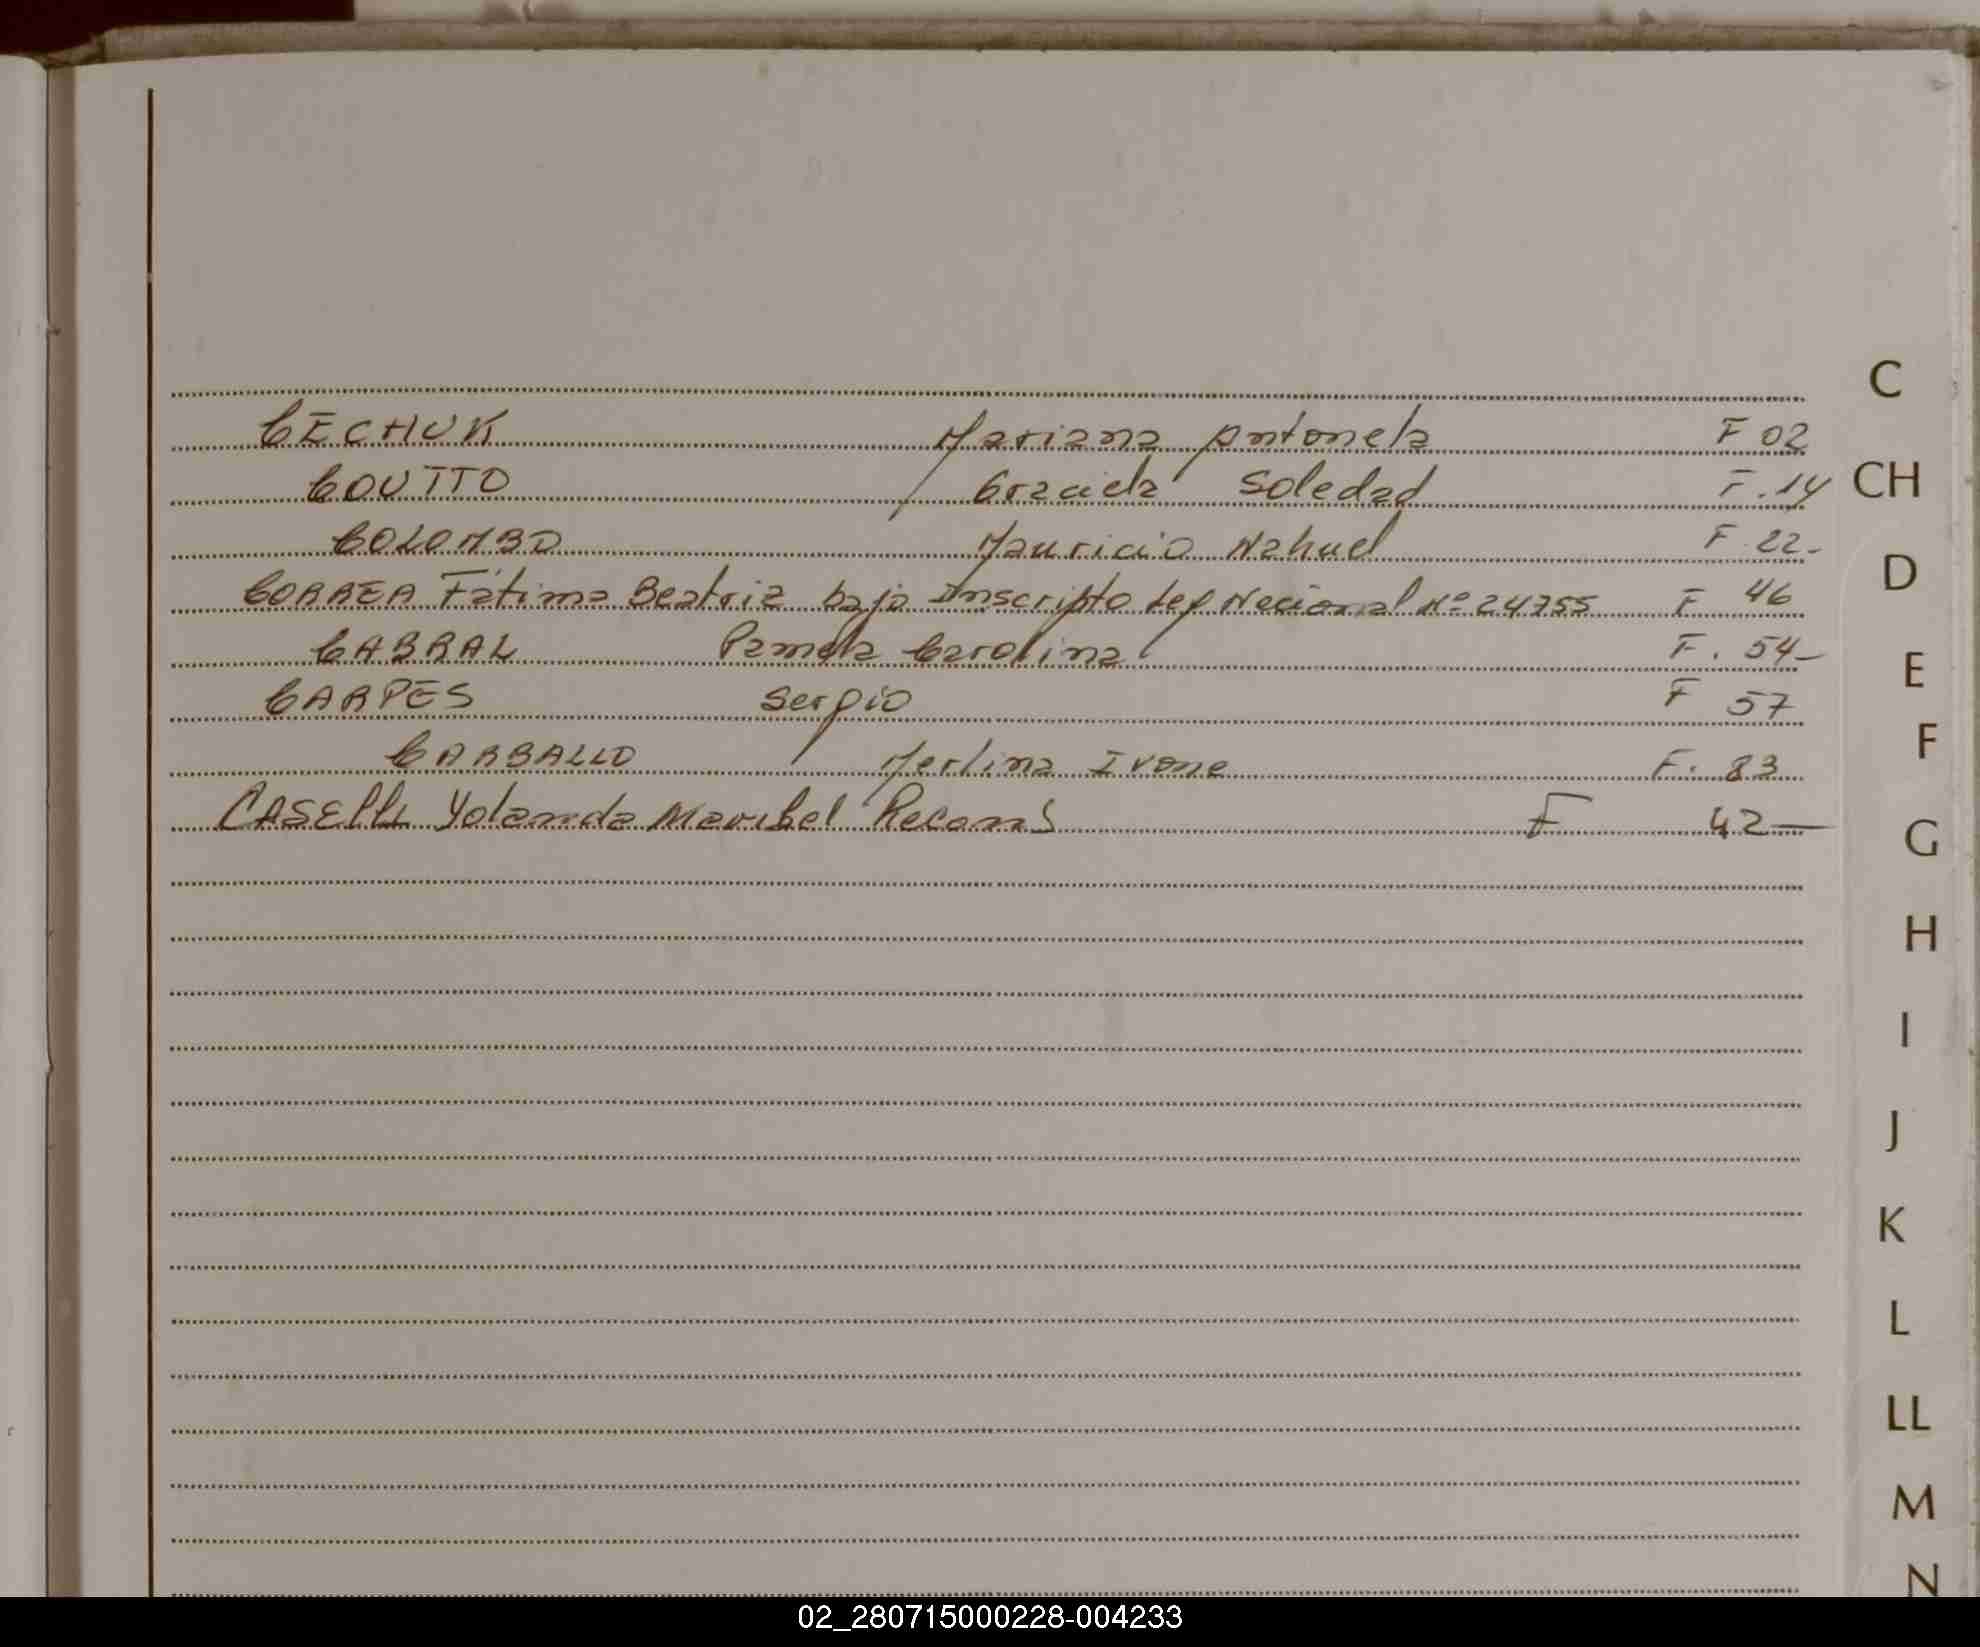 C
CECHUK Mariana Antonela F 02
COUTTO Graciela Soledad F. 14
CH
COLOMBO Mauricio Nahuel F 22-
D
CORREA Fátima Beatriz bajo Inscripto Ley Nacional Nº 24755 F 46
CABRAL Pamela Carolina F. 54-
E
CARPES Sergio F 57
F
CARBALLO Merlina Ivone F. 83
CASELLI Yolanda Maribel F 42—
G
H
I
J
K
L
LL
M
N
02_280715000228-004233